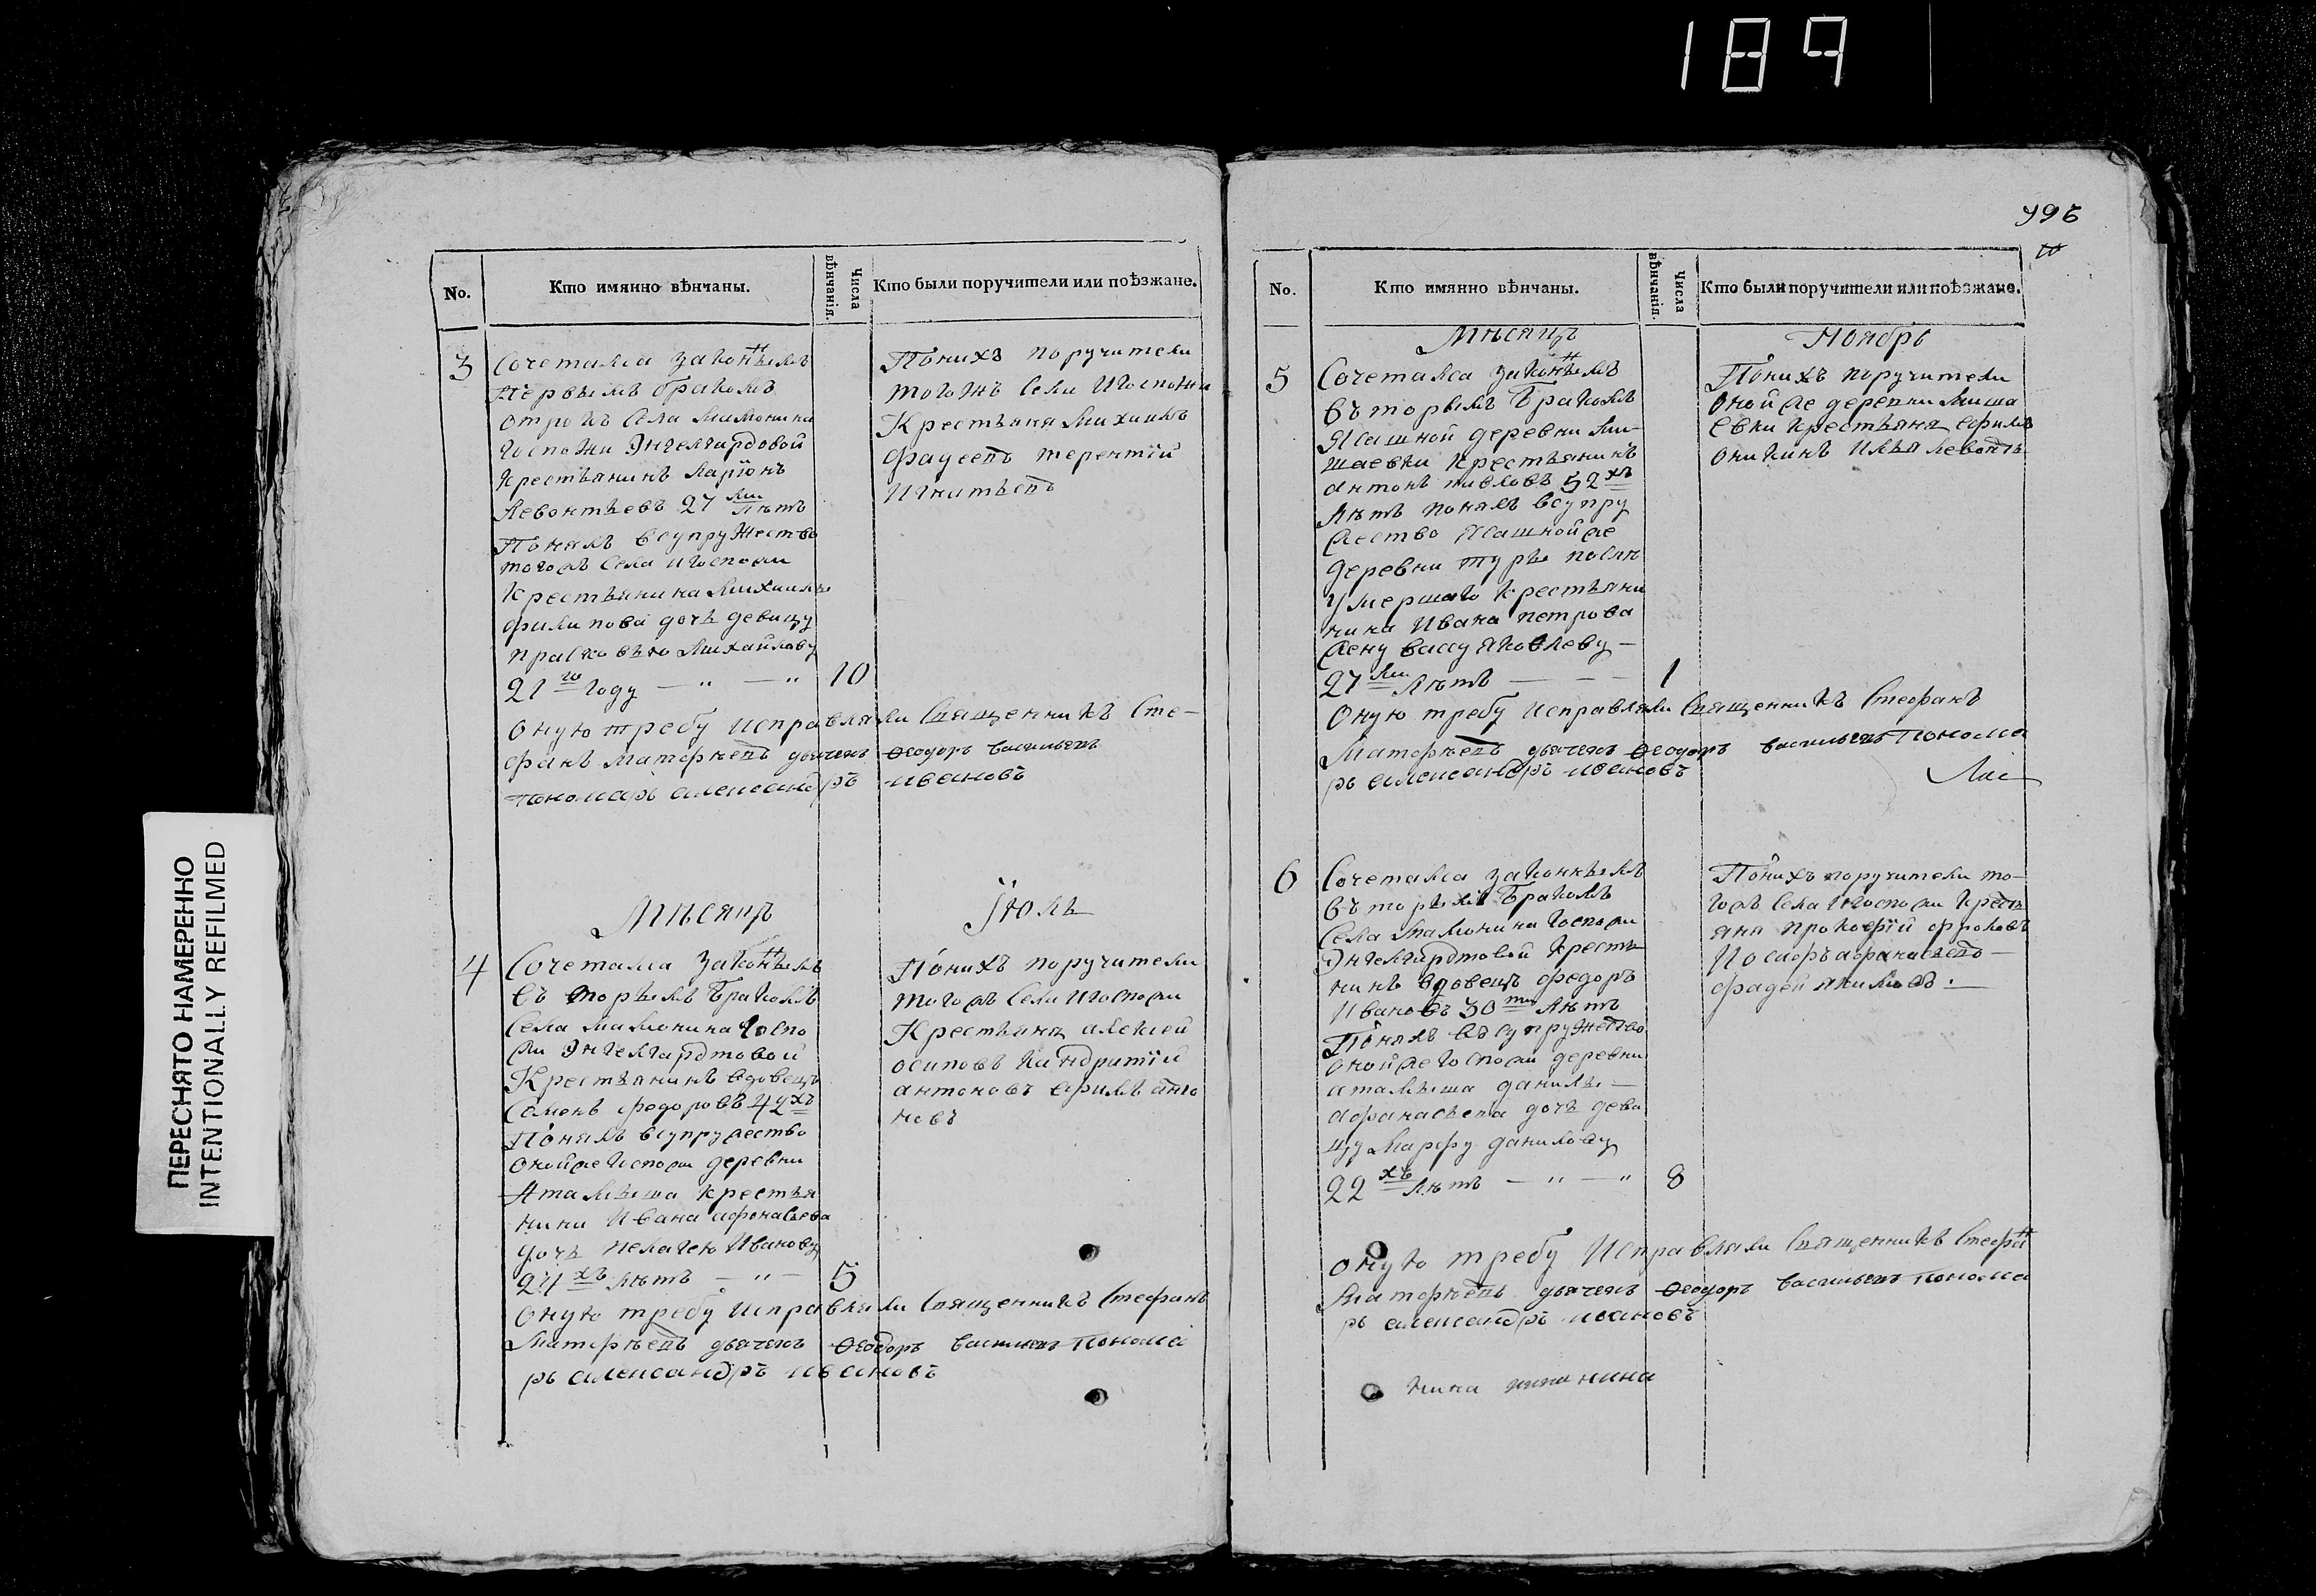 189
ПЕРЕСНЯТО НАМЕРЕННО
INTENTIONALLY REFILMED
No.
Кто имянно вѣнчаны.
Числа вѣнчанія.
Кто были поручители или поѣзжане.
3
Сочетался законнымъ
Первымъ бракомъ
отрокъ Села Мамонина
Госпожи Энгелгардовой
крестьянинъ Ларіонъ
Левонтьевъ 27ми лѣтъ
Понялъ всупружество
тогожъ Села и Госпожи
крестьянина Михаилы
филипова дочь девицу
прасковью Михайлову
21го году — " — "
10
Поних поручители
тогожъ Села и Госпожи
Крестьяня Михаилъ
фадеевъ терентій
Игнатьевъ
Оную требу исправляли Священникъ Сте-
фанъ Матфѣевъ дьячекъ Ѳеодоръ васильевъ
пономарь александръ ивановъ
Мѣсяцъ
Іюль
4
Сочетался законнымъ
въторымъ Бракомъ
Села мамонина Госпо
жи Энгелгардтовой
Крестьянинъ вдовецъ
Семенъ федоровъ 42хъ
Понялъ всупружество
оной же Госпожи деревни
Атамыша крестья
нина Ивана афонасьева
дочь пелагею Иванову
24хъ лѣтъ — " —
5
Понихъ поручители
тогожъ Села и Госпожи
Крестьяня алексей
осиповъ Кандратій
антоновъ ефимъ анто
новъ
Оную требу исправляли Священникъ Стефанъ
Матфѣевъ дьячекъ Ѳеодоръ васильевъ Понома
рь александръ ивановъ
No.
Кто имянно вѣнчаны.
Числа вѣнчанія.
Кто были поручители или поѣзжане.
Мѣсяцъ
Ноябрь
5
Сочетался законнымъ
въторымъ Бракомъ
Ясашной деревни Ми-
шаевки крестьянинъ
антонъ павловъ 52хъ
лѣтъ понялъ всупру
жество Ясашной же
деревни туры послѣ
умершаго крестьяни
нина Ивана петрова
жену вассу яковлеву —
27ми лѣтъ — — —
1
Понихъ поручители
оной же деревни миша
евки крестьяня ефимъ
Оную требу исправляли Священникъ Стефанъ
Матфѣевъ дьячекъ Ѳеодоръ васильевъ Понома
рь александръ ивановъ
6
Сочетался законнымъ
въторымъ Бракомъ
Села Мамонина Госпожи
Энгелгардтовой Крестья
нинъ вдовецъ федоръ
Ивановъ 30ти лѣтъ
Понялъ въ супружество
оной же Госпожи деревни
атамыша данилы —
афанасьева дочь деви
цу Марфу данилову
22хъ лѣтъ — " — "
8
Понихъ поручители то-
гожъ Села и Госпожи Кресть
яня прокофій фроловъ
фадей якимовъ. —
Оную требу Исправляли Священникъ Стефанъ
Матфѣевъ дьячекъ Ѳеодоръ васильевъ Понома
рь александръ ивановъ